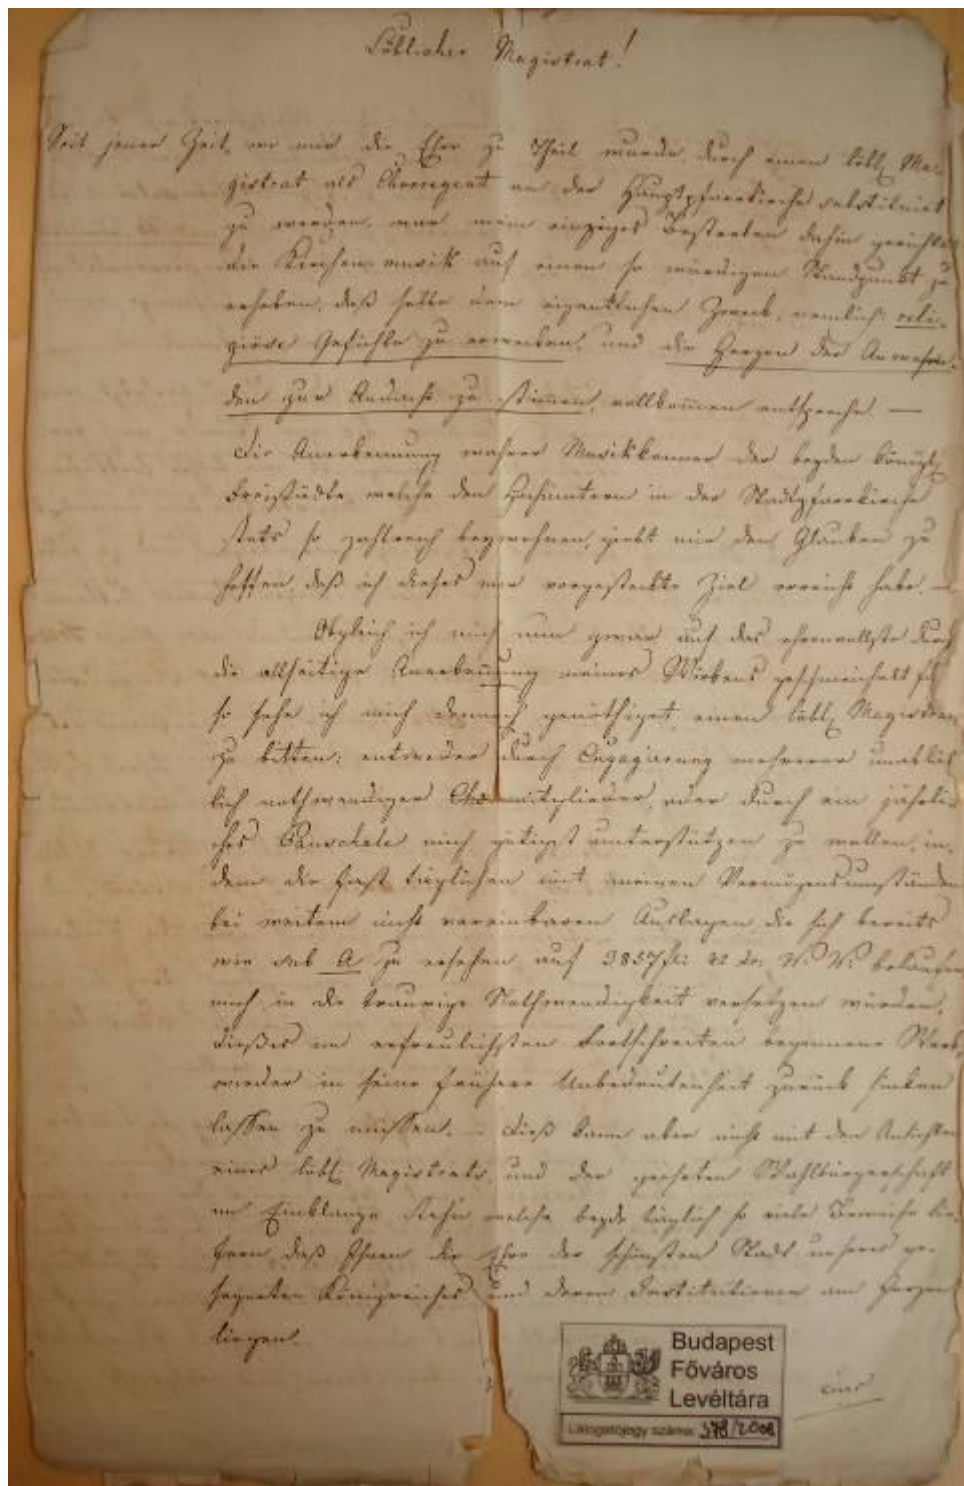 Löblicher Magistrat!
Seit jener Zeit, wo mir die Ehre zu Theil wurde durch einen löbl. Ma-
gistrat als Chorregent an der Hauptpfarrkirche substituiert
zu werden, war mein einziges Bestreben dahin gerichtet
die Kirchenmusik auf einen so würdigen Standpunkt zu
erheben, daß selbe dem eigentlichen Zweck, nemlich: reli-
giöse Gefühle zu erwecken, und die Herzen der Anwesen-
den zur Andacht zu stimmen, vollkommen entspreche. —
Die Anerkennung wahrer Musikkenner der beyden königl.
Freistädte, welche den Hochämtern in der Stadtpfarrkirche
stets so zahlreich beywohnen, giebt mir den Glauben zu
hoffen, daß ich dieses mir vorgesteckte Ziel erreicht habe. —
Obgleich ich mich nun zwar auf das ehrenvollste durch
die allseitige Anerkennung meines Wirkens geschmeichelt
so sehe ich mich dennoch genöthiget, einen löbl. Magistrat
zu bitten: entweder durch Engagirung mehrerer
nothwendiger Chormitglieder, oder durch ein jährli-
ches Pauschale mich gütigst unterstützen zu wollen, in-
dem die fast täglichen mit meinen Vermögensumständen
bei weitem nicht vereinbaren Auslagen die sich bereits
wie sub A zu ersehen auf 3857 fl: 42 xr: W. W: belaufen,
mich in die traurige Nothwendigkeit versetzen würden,
dießes im erfreulichsten Fortschreiten begonnene Werk,
wieder in seine frühere Unbedeutenheit zurück sinken
lassen zu müssen. — Dieß kann aber nicht mit den Ansichten
eines löbl. Magistrats, und der geehrten Wahlbürgerschaft
im Einklange stehn welche beyde täglich so viele Beweise lie-
fern, daß Ihnen die Ehre der schönsten Stadt unseres ge-
segneten Königreiches und deren Institutionen am Herzen
liegen.
Budapest
Főváros
Levéltára
Látogatójegy száma: 378/2008